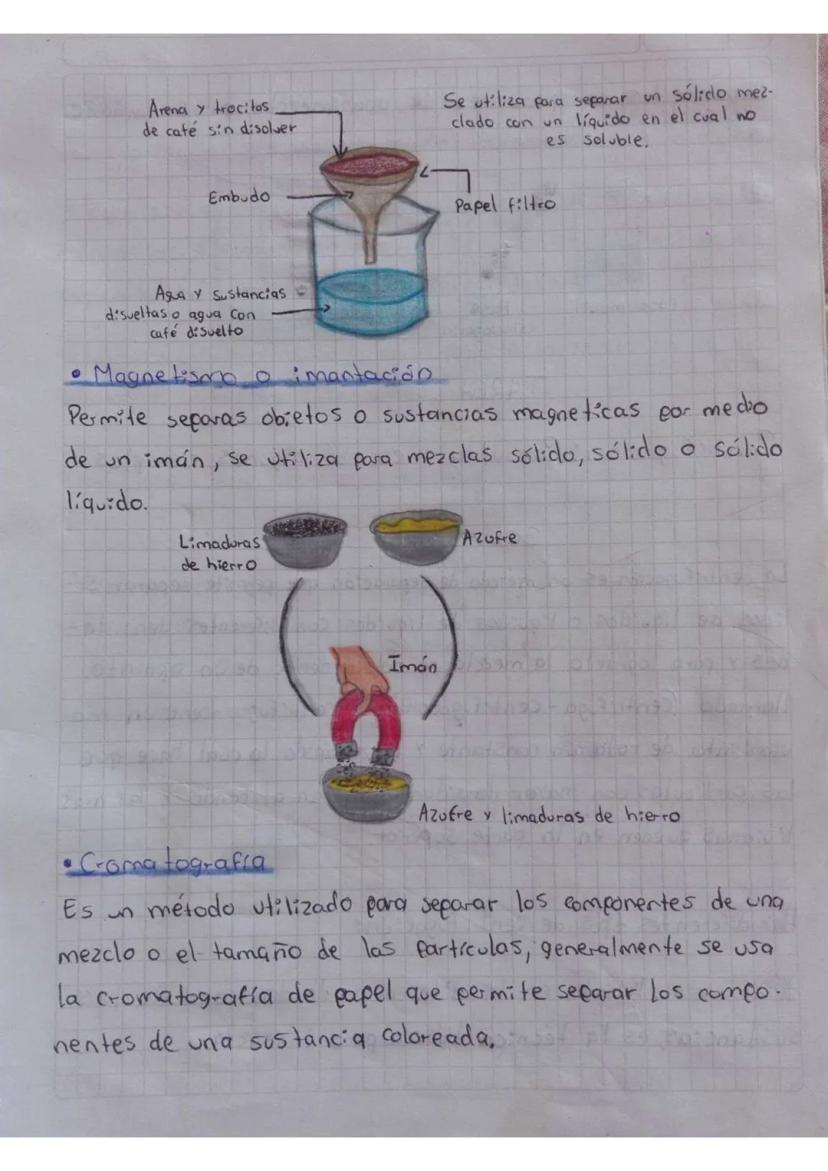 Arena y trocitos
de café sin disolver
Se utiliza para separar un sólido mez-
clado con un líquido en el cual no
es soluble.
Embudo
Papel filtro
Agua y sustancias
disueltas o agua con
café disuelto
• Magnetismo o imantación
Permite separas objetos o sustancias magneticas por medio
de un imán, se utiliza para mezclas sólido, sólido o sólido
líquido.
Limaduras
de hierro
Azufre
Imán
Azufre y limaduras de hierro
• Cromatografía
Es un método utilizado para separar los componentes de una
mezclo o el tamaño de las partículas, generalmente se usa
la cromatografía de papel que permite separar los compo-
nentes de una sustancia coloreada.